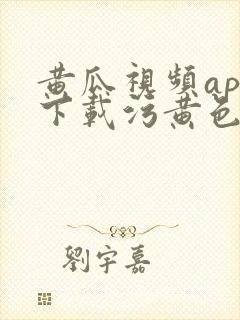 黄瓜視頻ap
下載污黄色
劉宇嘉